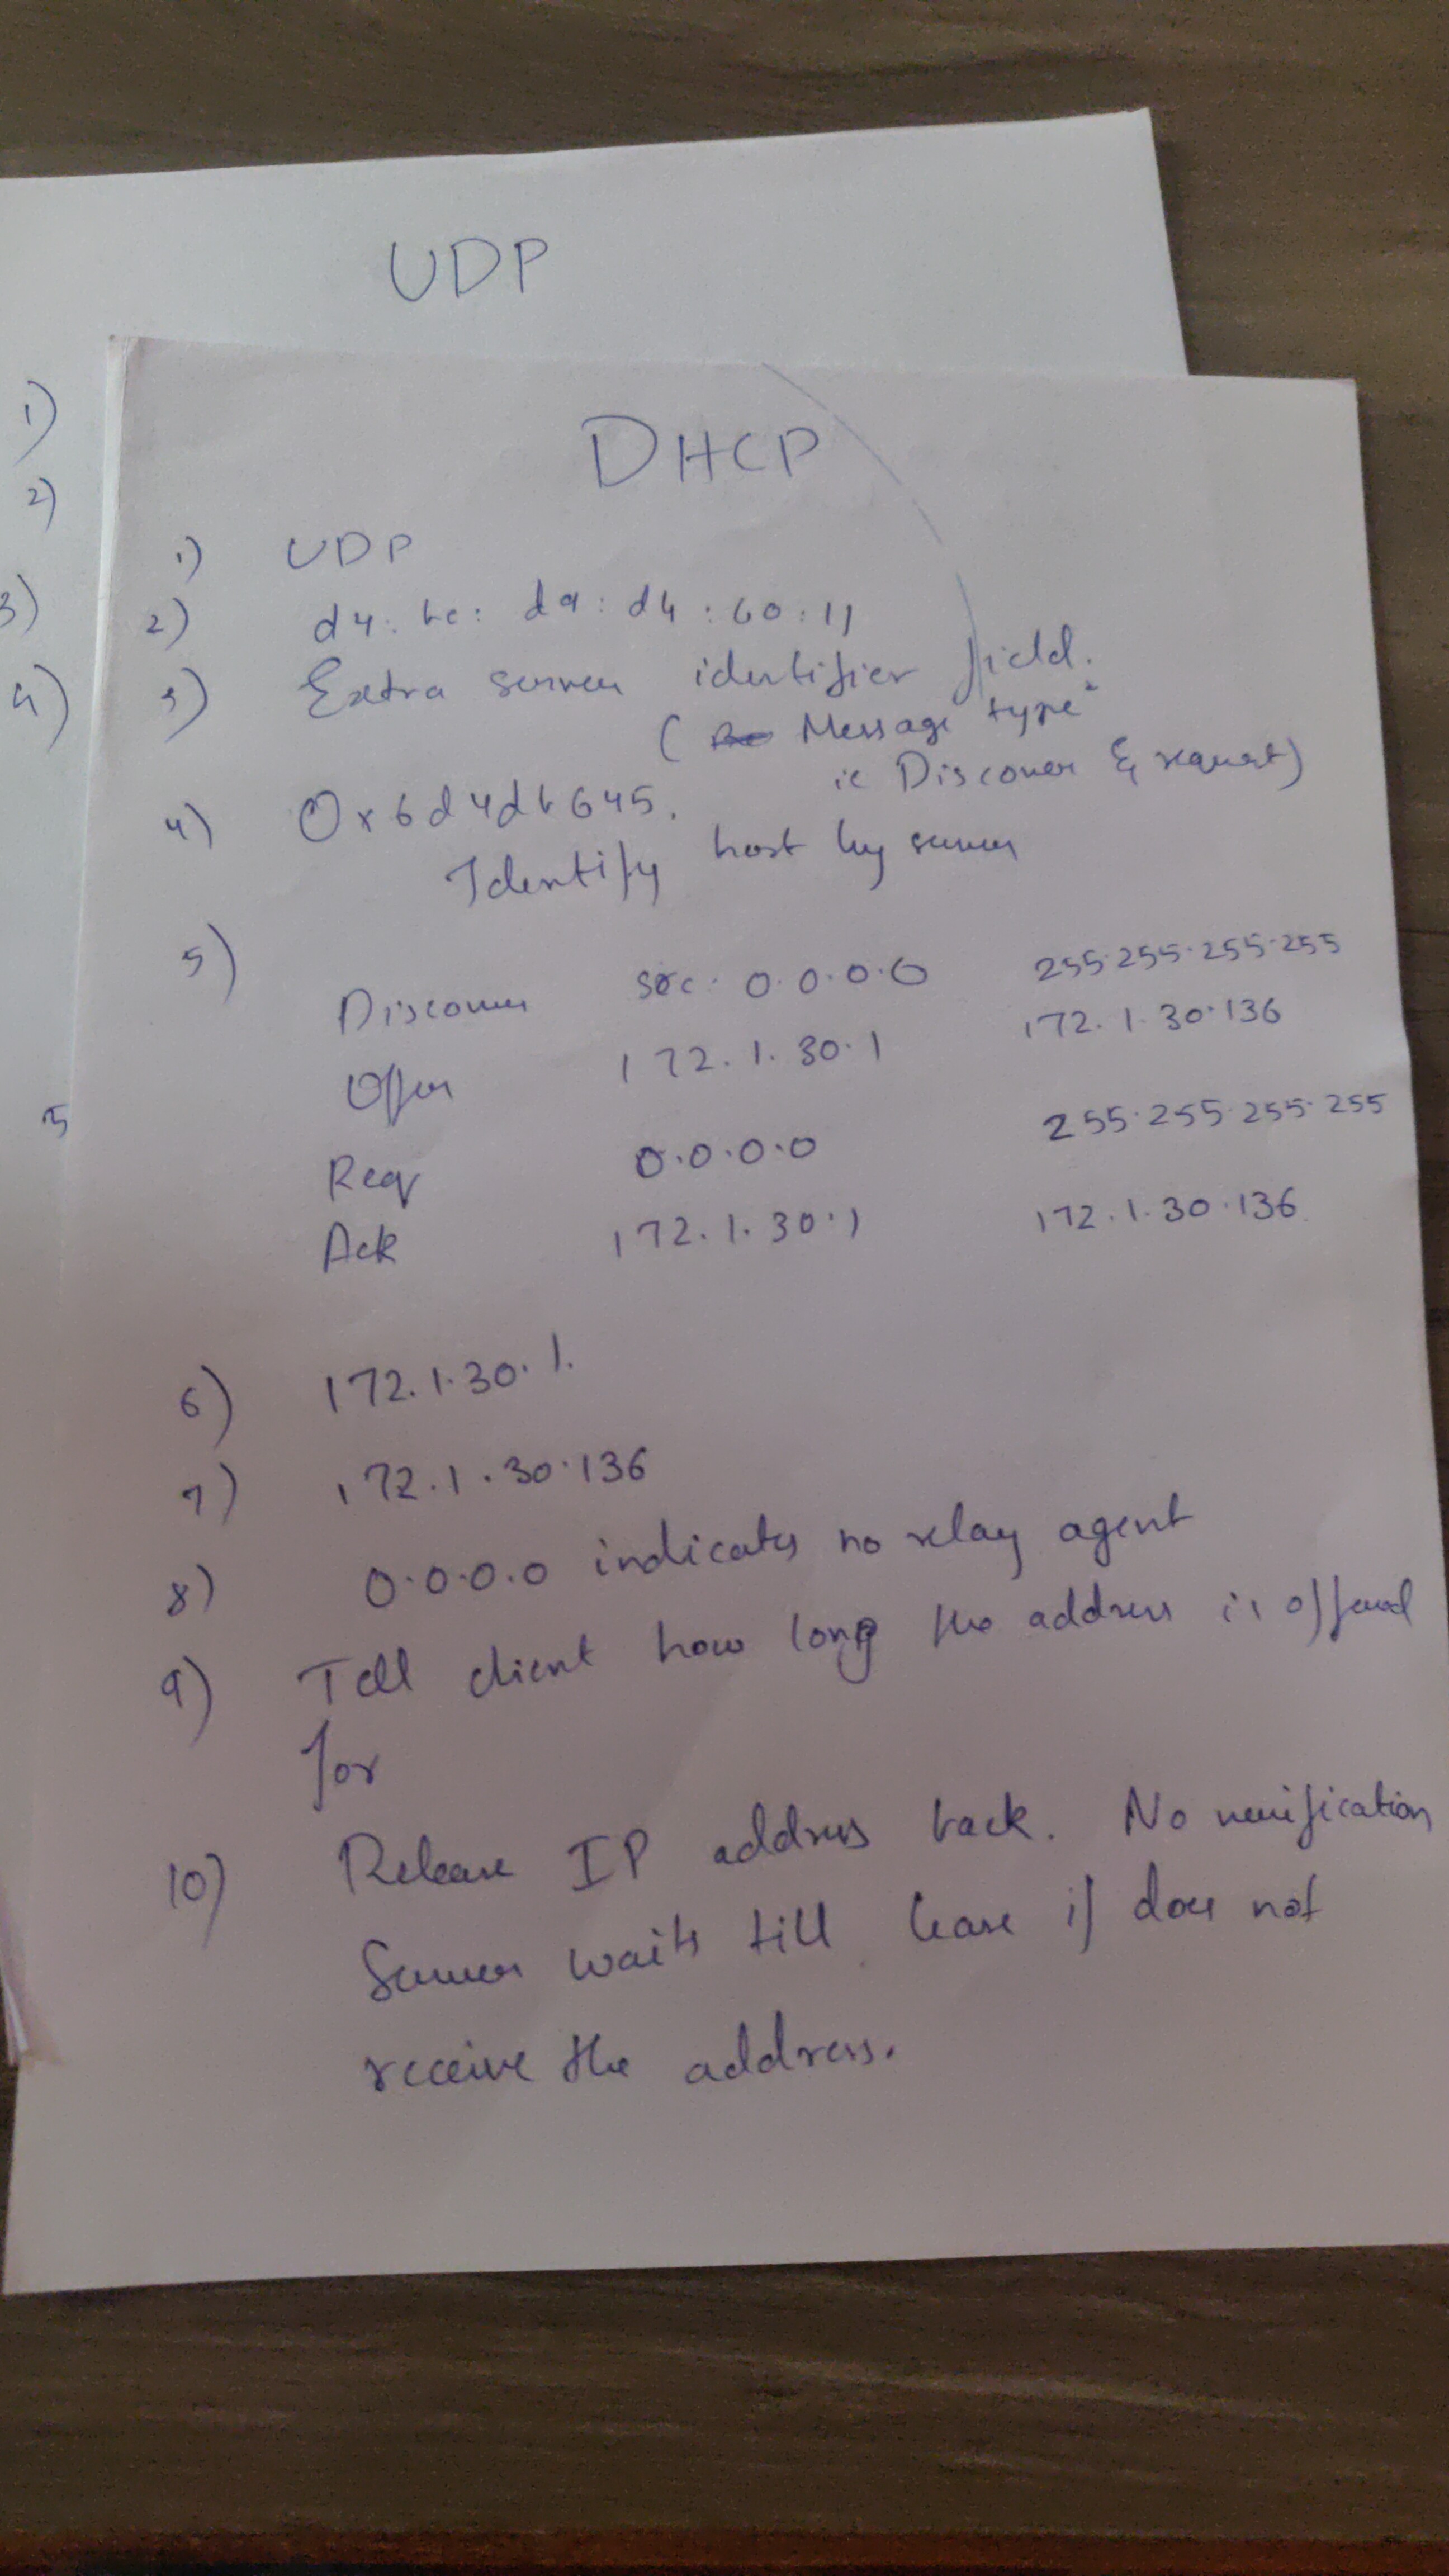 UDP
1)
2)
3)
4)
5
DHCP
1) UDP
2) d4:be:d9:d4:60:11
3) Extra server identifier field.
( Message type"
ie Discover & request)
4) 0x6d4db645.
Identify host by server
5)
Discover src: 0.0.0.0 255.255.255.255
Offer 172.1.30.1 172.1.30.136
Req 0.0.0.0 255.255.255.255
Ack 172.1.30.1 172.1.30.136
6) 172.1.30.1.
7) 172.1.30.136
8) 0.0.0.0 indicates no relay agent
9) Tell client how long the address is offered
for
10) Release IP address back. No verification
Server waits till lease if does not
receive the address.